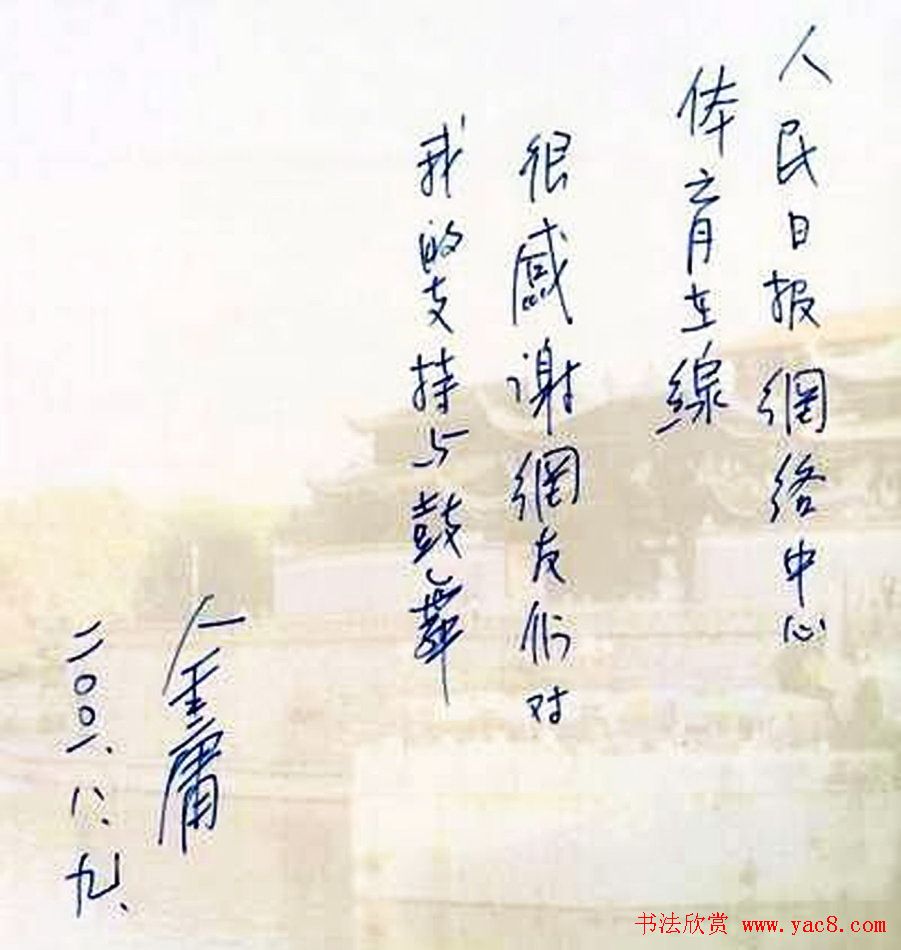 人民日报網络中心
体育在線
很感谢網友们对
我的支持与鼓舞
金庸
二〇〇一、八、九、
书法欣赏 www.yac8.com